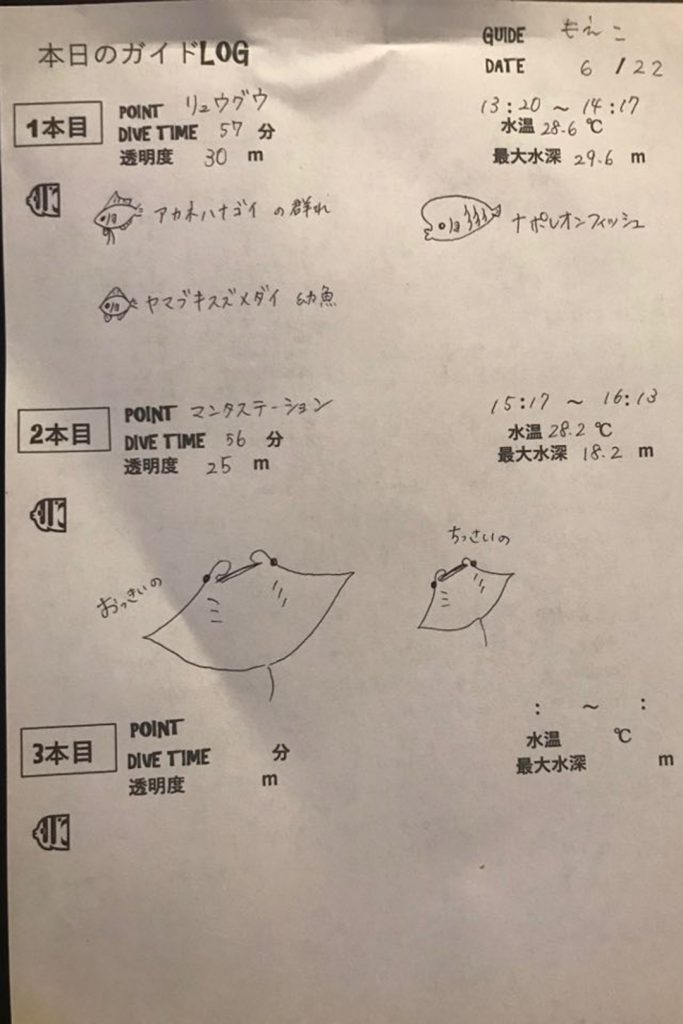 本日のガイドLOG
GUIDE もえこ
DATE 6/22
1本目
POINT リュウグウ
13:20 ~ 14:17
DIVE TIME 57 分
水温 28.6 ℃
透明度 30 m
最大水深 29.6 m
アカネハナゴイ の群れ
ナポレオンフィッシュ
ヤマブキスズメダイ 幼魚
2本目
POINT マンタステーション
15:17 ~ 16:13
DIVE TIME 56 分
水温 28.2 ℃
透明度 25 m
最大水深 18.2 m
おっきいの
ちっさいの
3本目
POINT
: ~ :
DIVE TIME 分
水温 ℃
透明度 m
最大水深 m